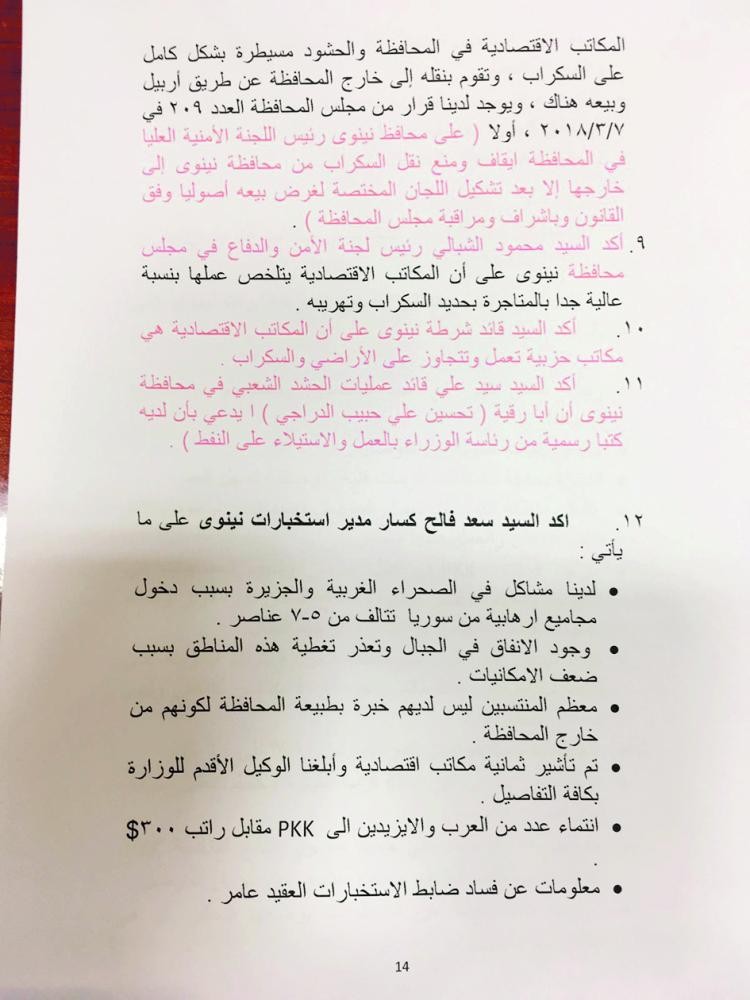 المكاتب الاقتصادية في المحافظة والحشود مسيطرة بشكل كامل
على السكراب ، وتقوم بنقله إلى خارج المحافظة عن طريق أربيل
وبيعه هناك ، ويوجد لدينا قرار من مجلس المحافظة العدد ٢٠٩ في
٢٠١٨/٣/٧ ، أولا ( على محافظ نينوى رئيس اللجنة الأمنية العليا
في المحافظة ايقاف ومنع نقل السكراب من محافظة نينوى إلى
خارجها إلا بعد تشكيل اللجان المختصة لغرض بيعه أصوليا وفق
القانون وباشراف ومراقبة مجلس المحافظة ) .
٩. أكد السيد محمود الشبالي رئيس لجنة الأمن والدفاع في مجلس
محافظة نينوى على أن المكاتب الاقتصادية يتلخص عملها بنسبة
عالية جدا بالمتاجرة بحديد السكراب وتهريبه .
١٠. أكد السيد قائد شرطة نينوى على أن المكاتب الاقتصادية هي
مكاتب حزبية تعمل وتتجاوز على الأراضي والسكراب .
١١. أكد السيد سيد علي قائد عمليات الحشد الشعبي في محافظة
نينوى أن أبا رقية ( تحسين علي حبيب الدراجي ) ا يدعي بأن لديه
كتبا رسمية من رئاسة الوزراء بالعمل والاستيلاء على النفط ) .
١٢. اكد السيد سعد فالح كسار مدير استخبارات نينوى على ما
يأتي :
• لدينا مشاكل في الصحراء الغربية والجزيرة بسبب دخول
مجاميع ارهابية من سوريا تتالف من ٥-٧ عناصر .
• وجود الانفاق في الجبال وتعذر تغطية هذه المناطق بسبب
ضعف الامكانيات .
• معظم المنتسبين ليس لديهم خبرة بطبيعة المحافظة لكونهم من
خارج المحافظة .
• تم تأشير ثمانية مكاتب اقتصادية وأبلغنا الوكيل الأقدم للوزارة
بكافة التفاصيل .
• انتماء عدد من العرب والايزيدين الى PKK مقابل راتب ٣٠٠$
.
• معلومات عن فساد ضابط الاستخبارات العقيد عامر .
14